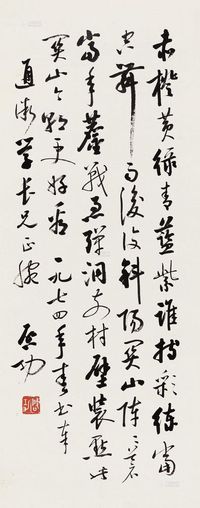 赤橙黄绿青蓝紫谁持彩练当
空舞雨后复斜阳关山阵阵苍
当年鏖战急弹洞前村壁装点此
关山今朝更好看 一九七四年春书奉
通学长兄正腕
启功